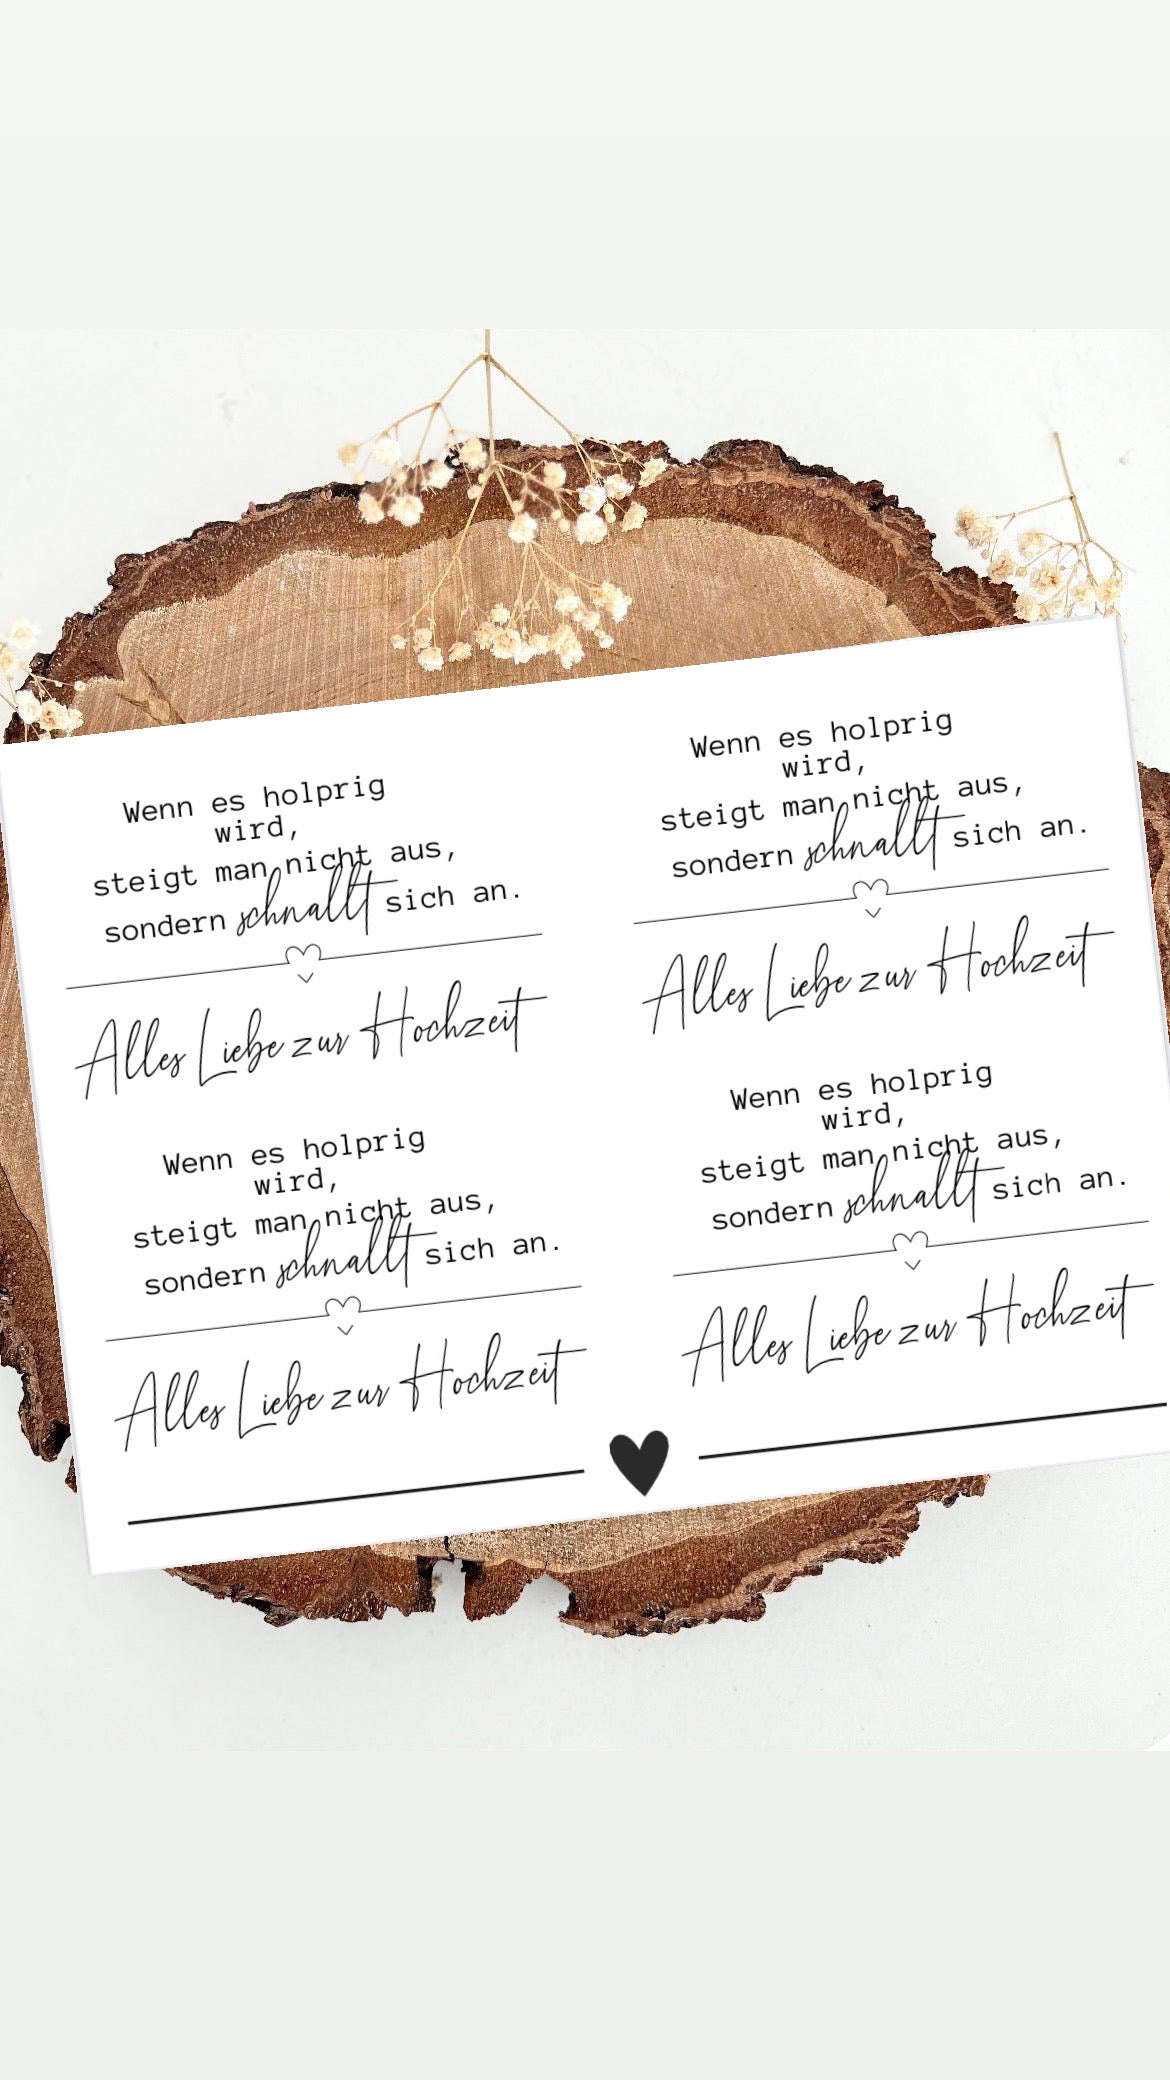 Wenn es holprig
wird,
steigt man nicht aus,
sondern schnallt sich an.
Alles Liebe zur Hochzeit
Wenn es holprig
wird,
steigt man nicht aus,
sondern schnallt sich an.
Alles Liebe zur Hochzeit
Wenn es holprig
wird,
steigt man nicht aus,
sondern schnallt sich an.
Alles Liebe zur Hochzeit
Wenn es holprig
wird,
steigt man nicht aus,
sondern schnallt sich an.
Alles Liebe zur Hochzeit